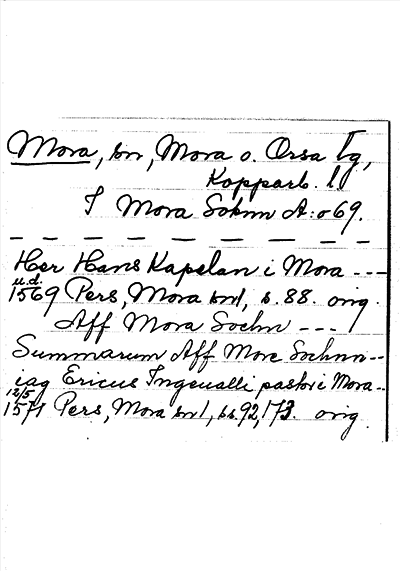 Mora, sn, Mora o. Orsa tg,
Kopparb. l.
I Mora Soknn A:o 69.
Her Hans Kapelan i Mora ---
u.d.
1569 Pers, Mora snl, s. 88. orig.
Aff Mora Sochn ---
Summarum Aff More Sochnn--
iag Ericus Ingeualli pastor i Mora--
12/5
1571 Pers, Mora snl, ss. 92, 173. orig.